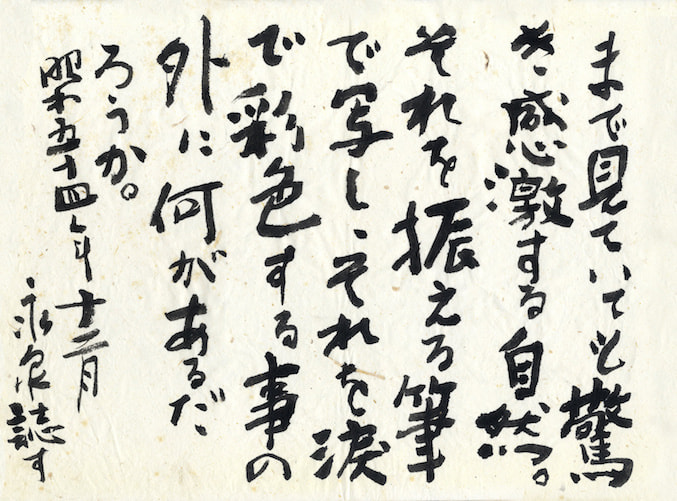 まで見ていても驚
き感激する自然。
それを振える筆
で写し、それを涙
で彩色する事の
外に何があるだ
ろうか。
昭和五十四年十二月
永泉誌す